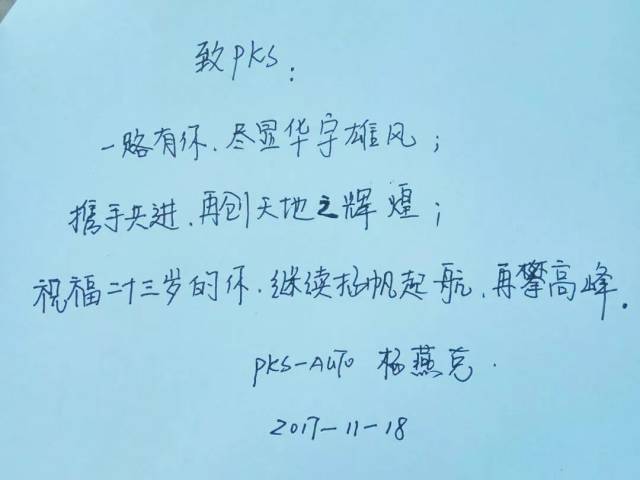 致PKS:
一路有你、尽显华宇雄风;
携手共进、再创天地之辉煌;
祝福二十三岁的你、继续扬帆起航、再攀高峰.
PKS-AUTO 杨燕克.
2017-11-18